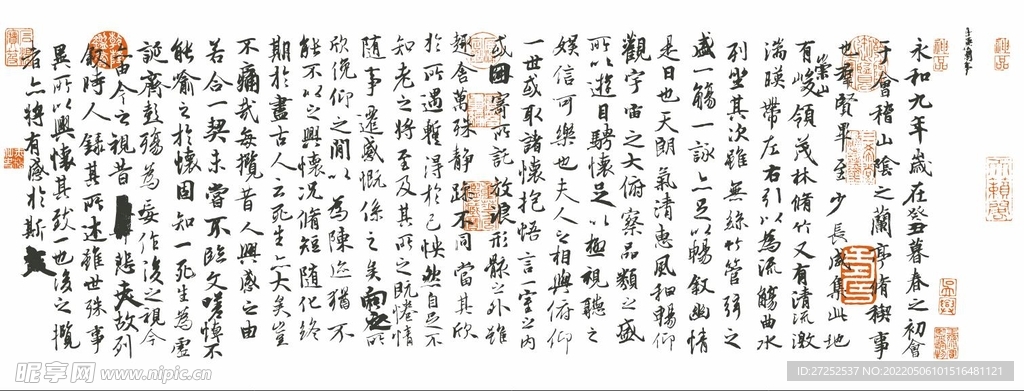 永和九年歲在癸丑暮春之初會
于會稽山陰之蘭亭脩禊事
也羣賢畢至少長咸集此地
有崇山峻領茂林脩竹又有清流激
湍暎帶左右引以為流觴曲水
列坐其次雖無絲竹管弦之
盛一觴一詠亦足以暢敘幽情
是日也天朗氣清惠風和暢仰
觀宇宙之大俯察品類之盛
所以遊目騁懷足以極視聽之
娛信可樂也夫人之相與俯仰
一世或取諸懷抱悟言一室之內
或因寄所託放浪形骸之外雖
趣舍萬殊靜躁不同當其欣
於所遇暫得於己怏然自足不
知老之將至及其所之既惓情
隨事遷感慨係之矣向之所
欣俛仰之間以為陳迹猶不
能不以之興懷況脩短隨化終
期於盡古人云死生亦大矣豈
不痛哉每攬昔人興感之由
若合一契未嘗不臨文嗟悼不
能喻之於懷固知一死生為虛
誕齊彭殤為妄作後之視今
亦由今之視昔悲夫故列
敘時人錄其所述雖世殊事
異所以興懷其致一也後之攬
者亦將有感於斯文
昵享网 www.nipic.cn
ID:27252537 NO:20220506101516481121